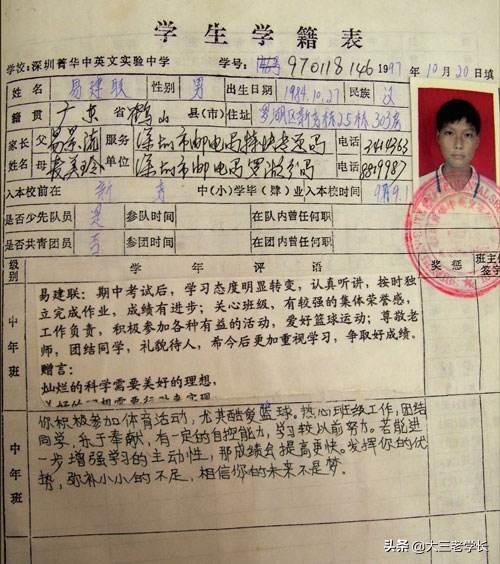 学生学籍表
学校:深圳菁华中英文实验中学 学号: 970118146 1997年10月20日填
姓名 易建联 性别 男 出生日期 1984.10.27 民族 汉
籍贯 广东省鹤山县(市) 住址 罗湖区新港 25栋303房
家长姓名 父 易景流 服务单位 深圳市邮电局特快专递局 电话
母 麦美玲 深圳市邮电局罗湖分局 电话
入本校前在 中(小)学毕(肄)业 入本校时间 9.1
是否少先队员 是 参队时间 在队内曾任何职
是否共青团员 否 参团时间 在团内曾任何职
级别 学年评语 奖惩 班主任签字
中年班
易建联:期中考试后,学习态度明显转变,认真听讲,按时独
立完成作业,成绩有进步;关心班级,有较强的集体荣誉感,
工作负责,积极参加各种有益的活动,爱好篮球运动;尊敬老
师,团结同学,礼貌待人,希今后更加重视学习,争取好成绩。
赠言:
灿烂的科学需要美好的理想,
中年班
你积极参加体育活动,尤其酷爱篮球。热心班级工作,团结
同学,乐于奉献,有一定的自控能力,学习较以前努力。若能进
一步增强学习的主动性,那成绩会提高更快。发挥你的优
势,弥补小小的不足,相信你的未来不是梦。
头条 @大三老学长